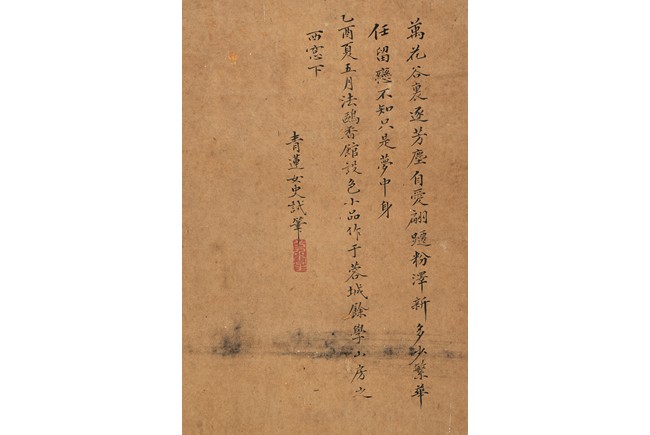 萬花谷裏逐芳塵自愛翩躚粉澤新多少繁華
任留戀不知只是夢中身
乙酉夏五月法鷗香館設色小品作于蓉城餘學山房之
西窓下
青蓮女史試筆